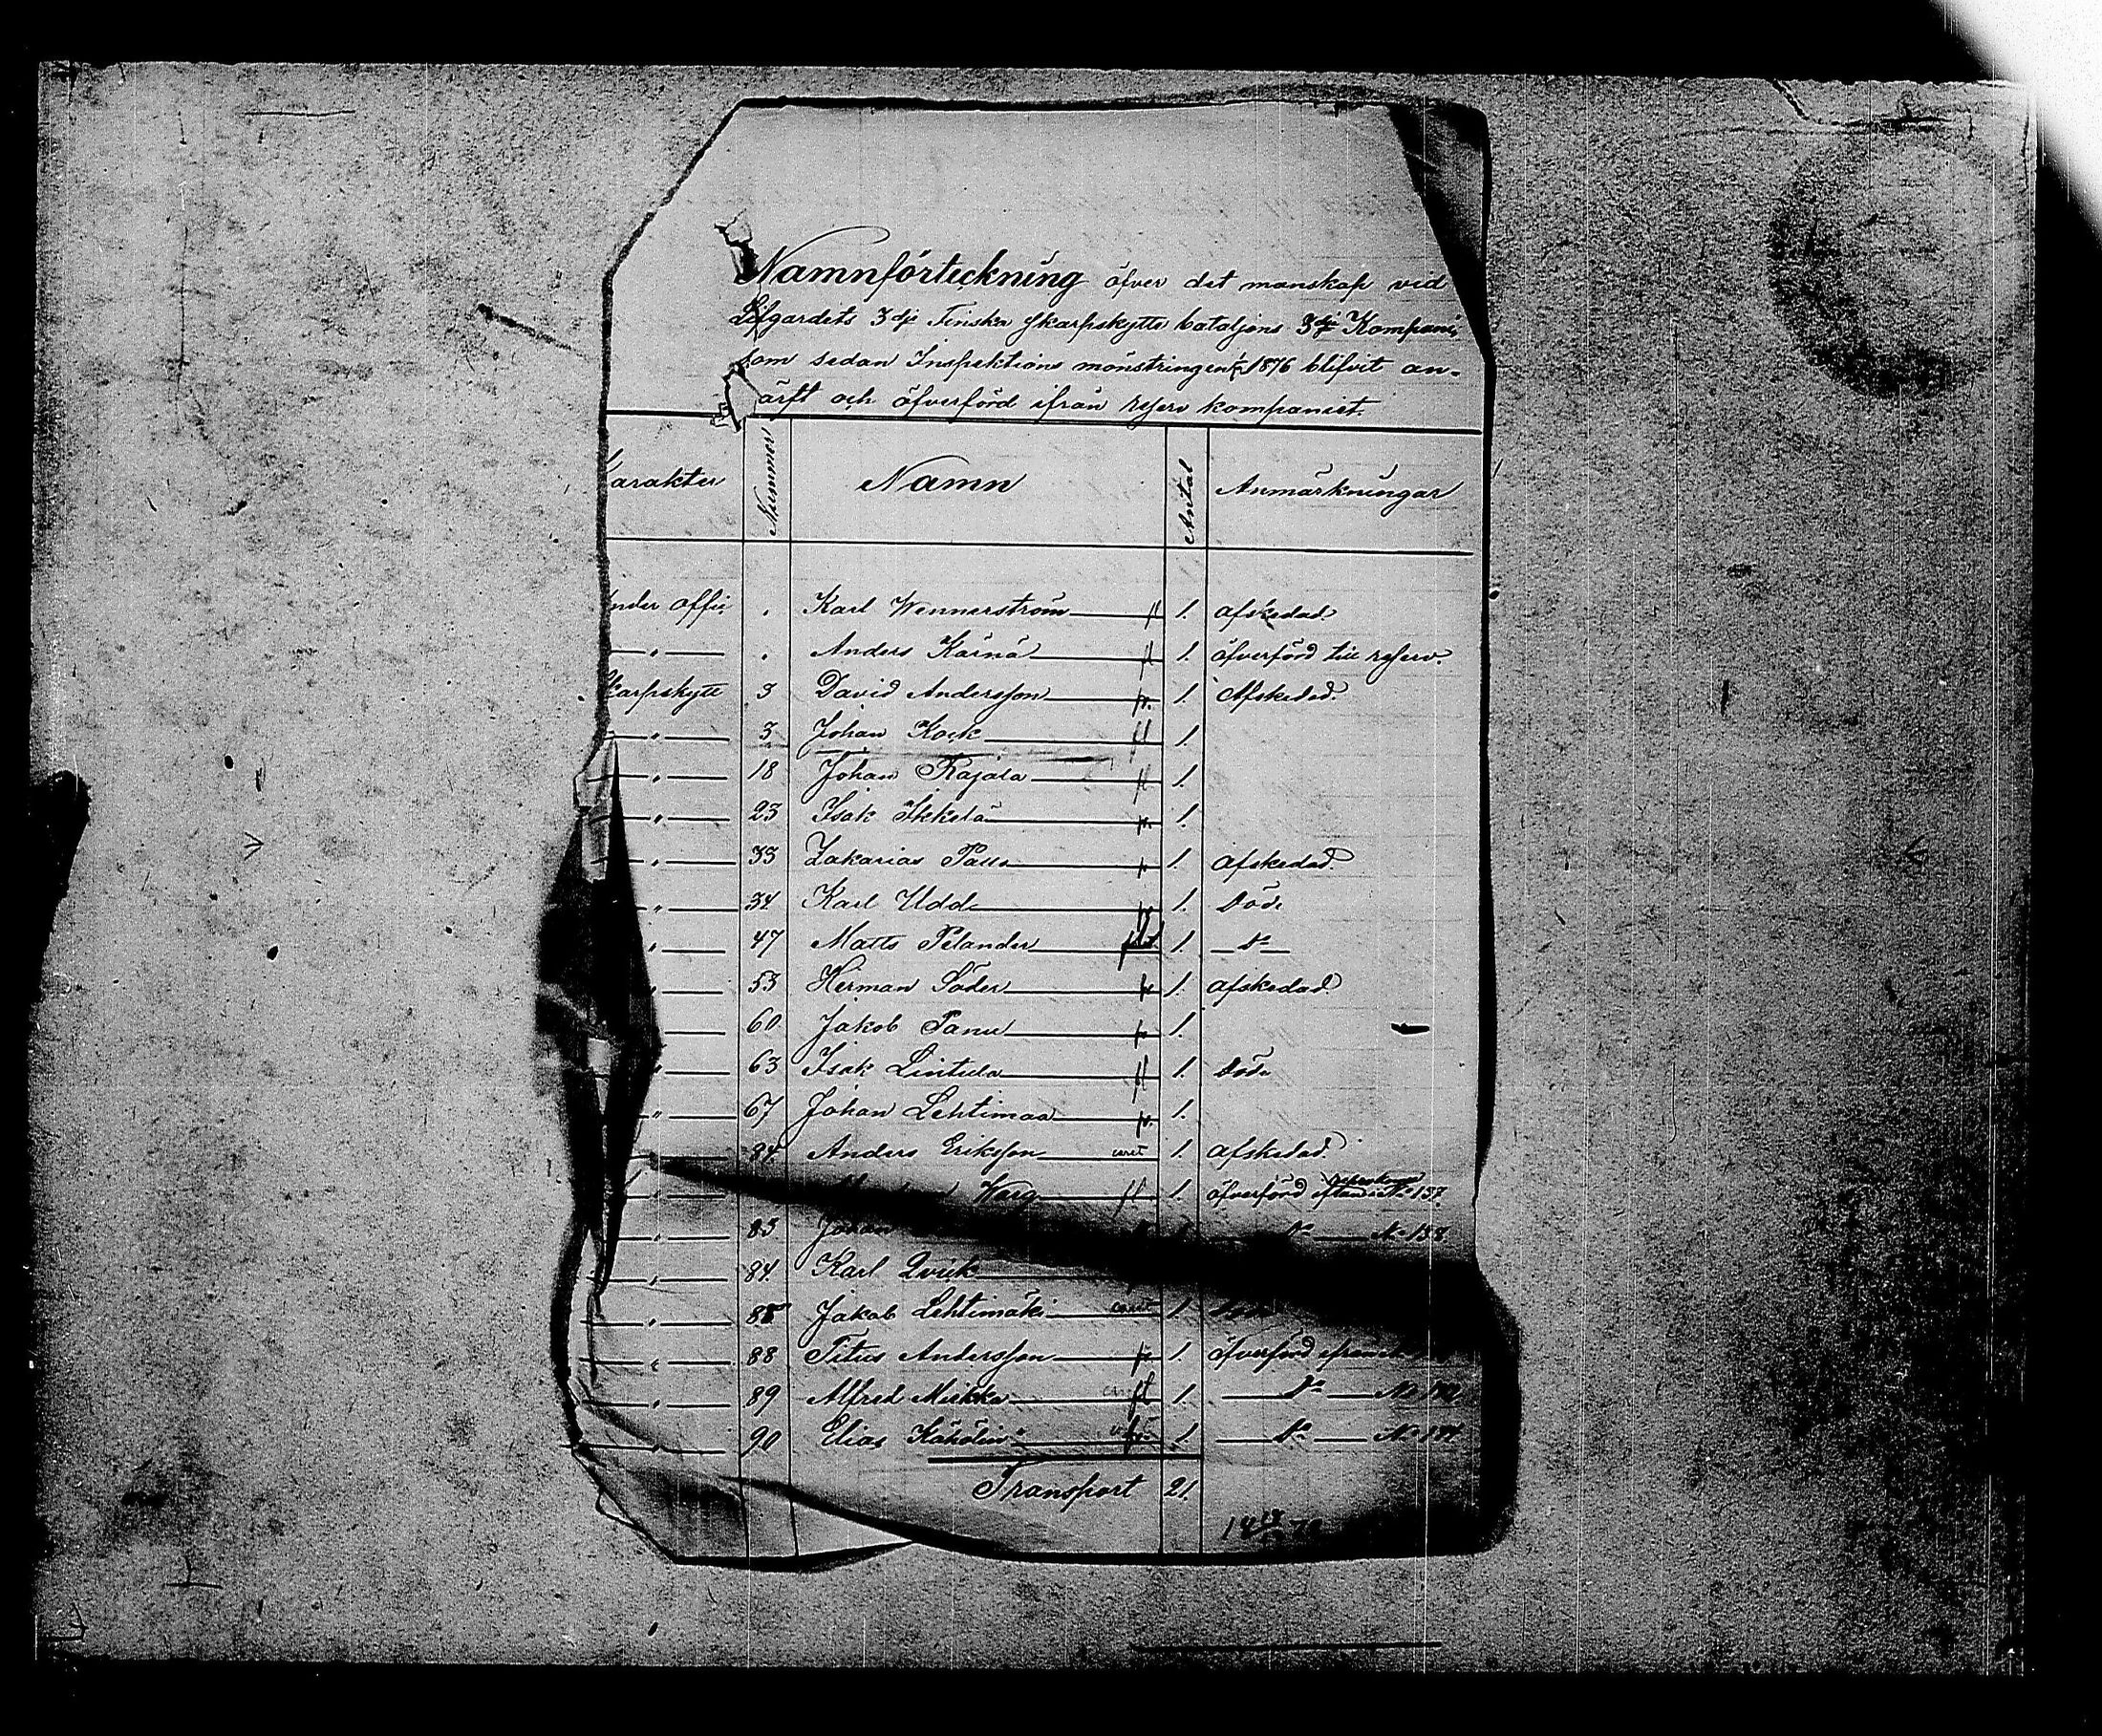 Namnförteckning öfver det manskap vid
Lifgardets 3dje Finska skarpskytte bataljons 3dje Kompani,
som sedan Inspektions mönstringen 1876 blifvit an-
och öfverförd ifrån reserv kompaniet.
arakter Nummer Namn Antal Anmärkningar
nder offic " Karl Wennerström fl 1. afskedad.
" " Anders Kärnä fl 1. öfverförd till reserv.
karpskytt 3 David Andersson fr. 1. Afskedad.
" 3 Johan Kock fl 1.
" 18 Johan Rajala fl 1.
" 23 Isak Ikkelä fr. 1.
" 33 Zakarias 1. afskedad.
" 34 Karl Udd 1. Död.
" 47 Matts Pelander 1. Do
" 53 Herman Söder fr 1. afskedad.
" 60 Jakob Panu fr 1.
" 63 Isak Lintula fl 1. Död.
" 67 Johan Lehtimaa fr. 1.
" 84. Anders Eriksson 1. afskedad.
" Harg fl 1. öfverförd No 157.
" 83 Johan Do No 158.
" 84. Karl Qvick
" 88 Jakob Lehtimäki 1.
" 88 Titus Andersson fr 1. öfverförd ifrån
" 89 Alfred Mickka fl 1. Do No
" 90 Elias 1 Do No
Transport 21.